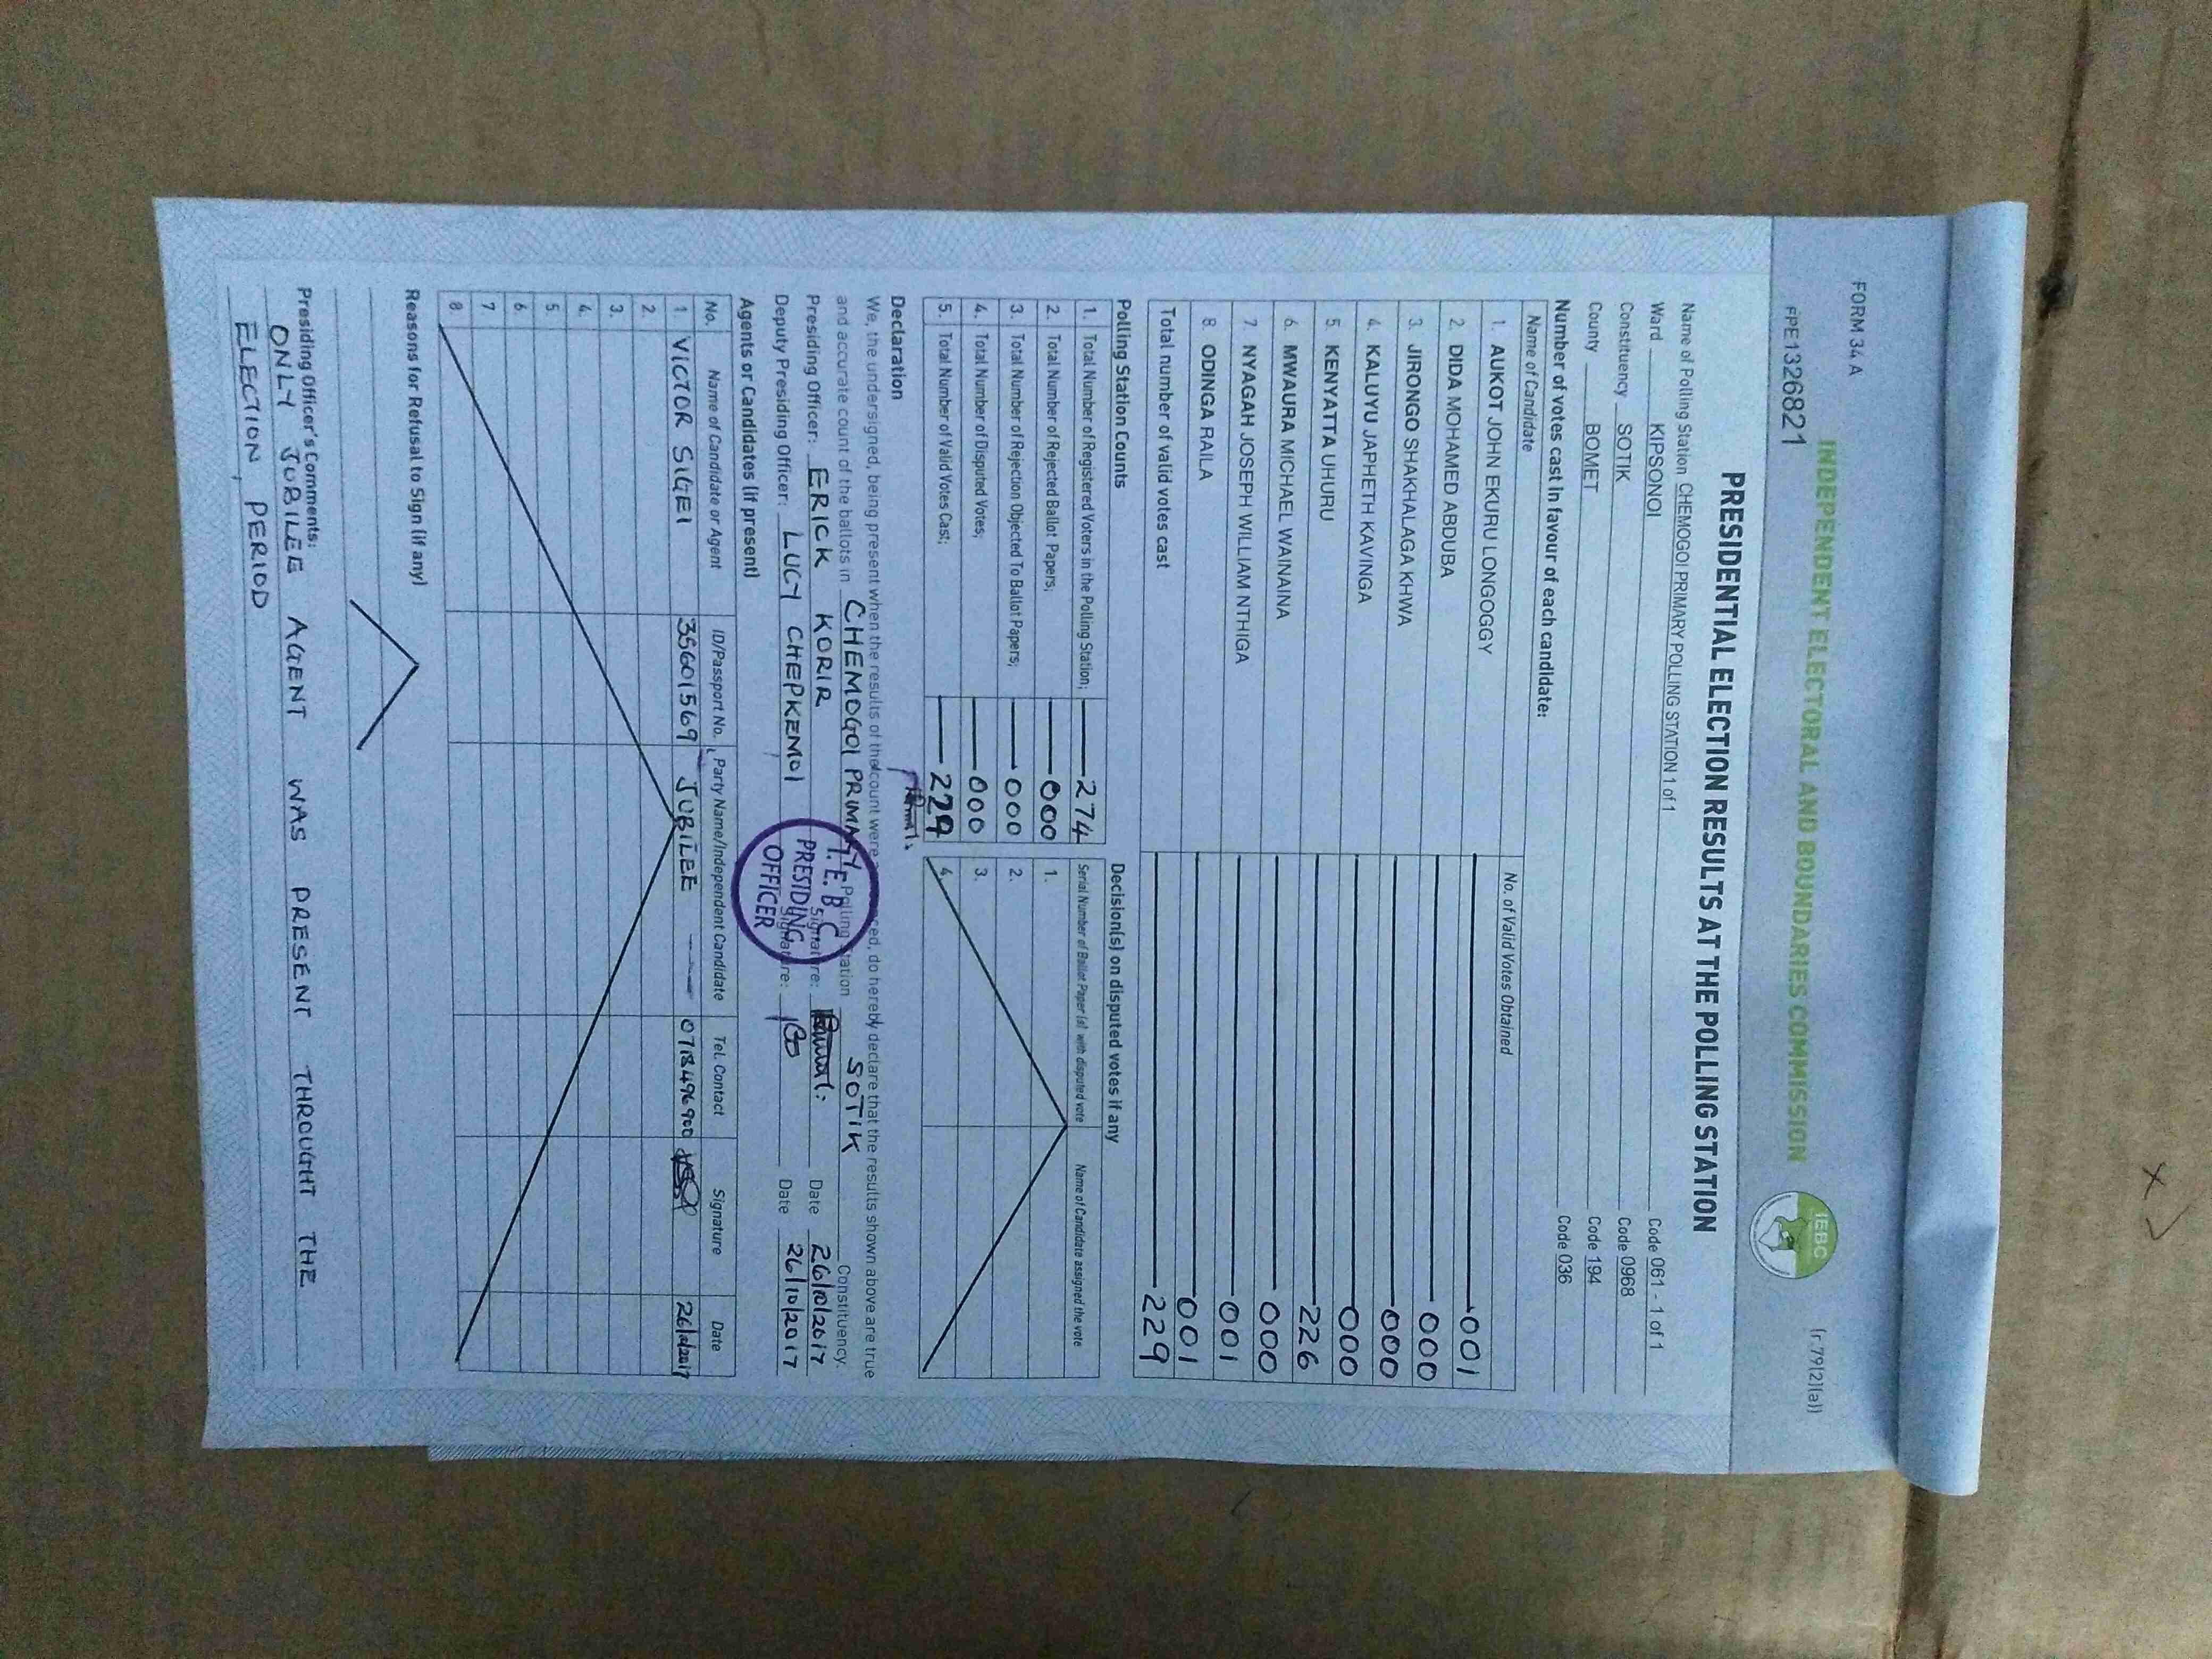 FORM 34 A
(r.79(2)(a))
PPE1326821
INDEPENDENT ELECTORAL AND BOUNDARIES COMMISSION
IEBC
PRESIDENTIAL ELECTION RESULTS AT THE POLLING STATION
Name of Polling Station CHEMOGOI PRIMARY POLLING STATION 1 of 1
Code 061 - 1 of 1
Ward KIPSONOI Code 0968
Constituency SOTIK Code 194
County BOMET Code 036
Number of votes cast in favour of each candidate:
Name of Candidate No. of Valid Votes Obtained
1. AUKOT JOHN EKURU LONGOGGY 001
2. DIDA MOHAMED ABDUBA 000
3. JIRONGO SHAKHALAGA KHWA 000
4. KALUYU JAPHETH KAVINGA 000
5. KENYATTA UHURU 226
6. MWAURA MICHAEL WAINAINA 000
7. NYAGAH JOSEPH WILLIAM NTHIGA 001
8. ODINGA RAILA 001
Total number of valid votes cast 229
Polling Station Counts
1. Total Number of Registered Voters in the Polling Station; 274
2. Total Number of Rejected Ballot Papers; 000
3. Total Number of Rejection Objected To Ballot Papers; 000
4. Total Number of Disputed Votes; 000
5. Total Number of Valid Votes Cast; 229
Decision(s) on disputed votes if any
Serial Number of Ballot Paper (s) with disputed vote Name of Candidate assigned the vote
1.
2.
3.
4.
Declaration
We, the undersigned, being present when the results of the count were do hereby declare that the results shown above are true
and accurate count of the ballots in CHEMOGOI PRIMARY Polling Station SOTIK Constituency.
Presiding Officer: ERICK KORIR Signature: Date 26/10/2017
Deputy Presiding Officer: LUCY CHEPKEMOI Signature: Date 26/10/2017
I.E.B.C
PRESIDING
OFFICER
Agents or Candidates (if present)
No. Name of Candidate or Agent ID/Passport No. Party Name/Independent Candidate Tel. Contact Signature Date
1 VICTOR SIGEI 35601569 JUBILEE 26/10/2017
2
3.
4.
5
6
7
8
Reasons for Refusal to Sign (if any)
Presiding Officer's Comments:
ONLY JUBILEE AGENT WAS PRESENT THROUGHT THE
ELECTION PERIOD